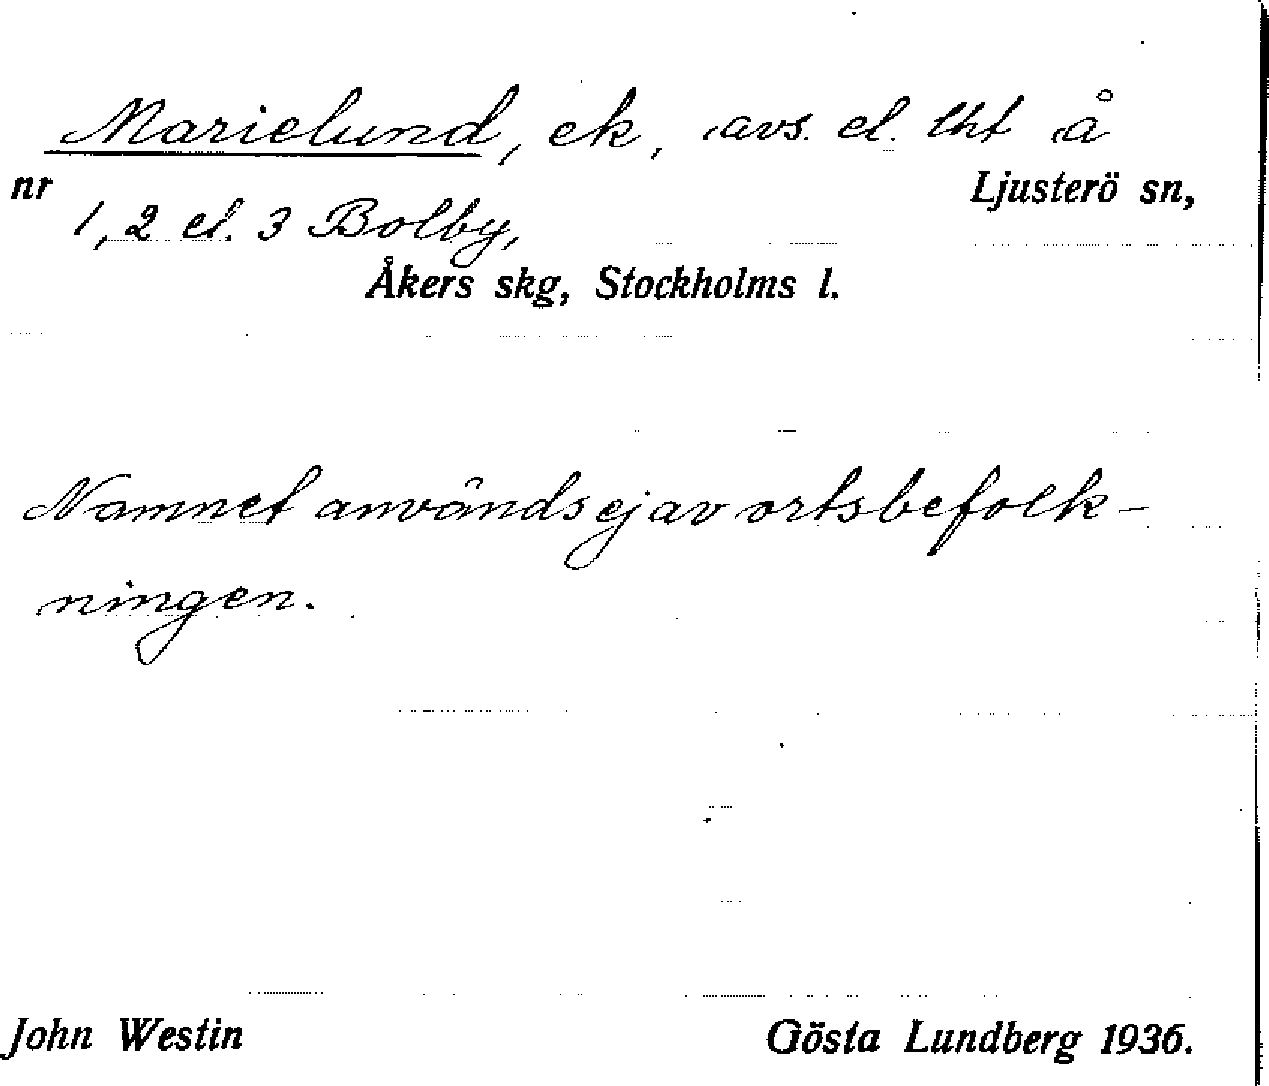 Marielund, ek, avs. el. lht å
nr 1, 2 el. 3 Bolby, Ljusterö sn,
Åkers skg, Stockholms l.
Namnet används ej av ortsbefolk-
ningen.
John Westin Gösta Lundberg 1936.